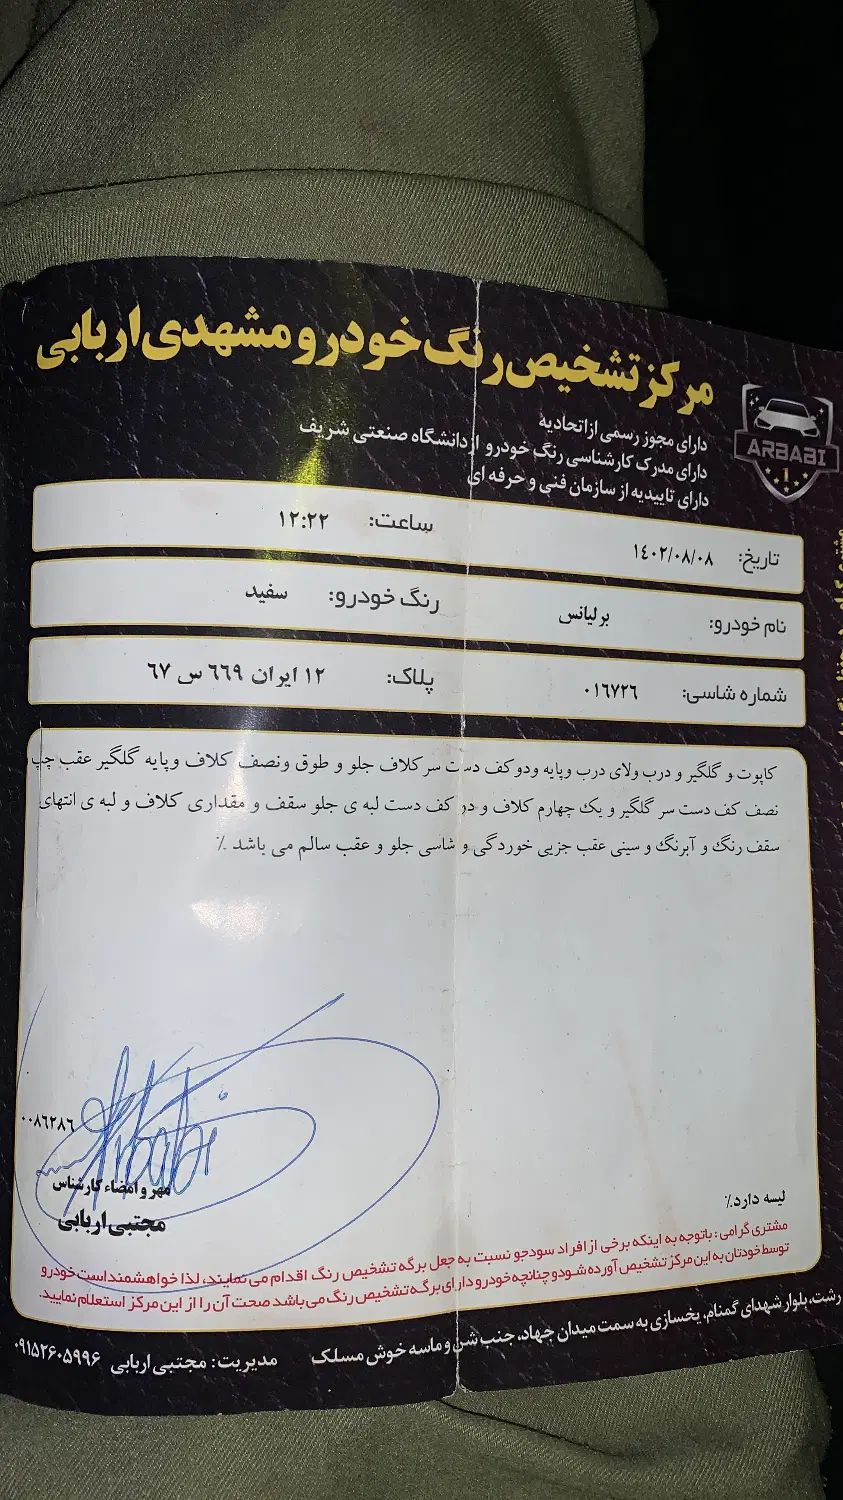 مرکز تشخیص رنگ خودرو مشهدی اربابی
ARBABI
1
دارای مجوز رسمی از اتحادیه
دارای مدرک کارشناسی رنگ خودرو از دانشگاه صنعتی شریف
دارای تاییدیه از سازمان فنی و حرفه ای
تاریخ: ۱۴۰۲/۰۸/۰۸ ساعت: ۱۲:۲۲
نام خودرو: برلیانس رنگ خودرو: سفید
شماره شاسی: ۰۱۶۷۲۶ پلاک: ۱۲ ایران ۶۶۹ س ۶۷
کاپوت و گلگیر و درب ولای درب وپایه ودو کف دست سر کلاف جلو و طوق ونصف کلاف وپایه گلگیر عقب چپ
نصف کف دست سر گلگیر و یک چهارم کلاف و در کف دست لبه ی جلو سقف و مقداری کلاف و لبه ی انتهای
سقف رنگ و آبرنگ و سینی عقب جزیی خوردگی و شاسی جلو و عقب سالم می باشد .٪
۰۰۸۶۲۸۶
Arbabi
مهر و امضاء کارشناس
مجتبی اربابی
لیسه دارد.٪
مشتری گرامی: باتوجه به اینکه برخی از افراد سودجو نسبت به جعل برگه تشخیص رنگ اقدام می نمایند، لذا خواهشمند است خودرو
توسط خودتان به این مرکز تشخیص آورده شود و چنانچه خودرو دارای برگه تشخیص رنگ می باشد صحت آن را از این مرکز استعلام نمایید.
رشت، بلوار شهدای گمنام، یخسازی به سمت میدان جهاد، جنب شن و ماسه خوش مسلک
مدیریت: مجتبی اربابی ۰۹۱۵۲۶۰۵۹۹۶